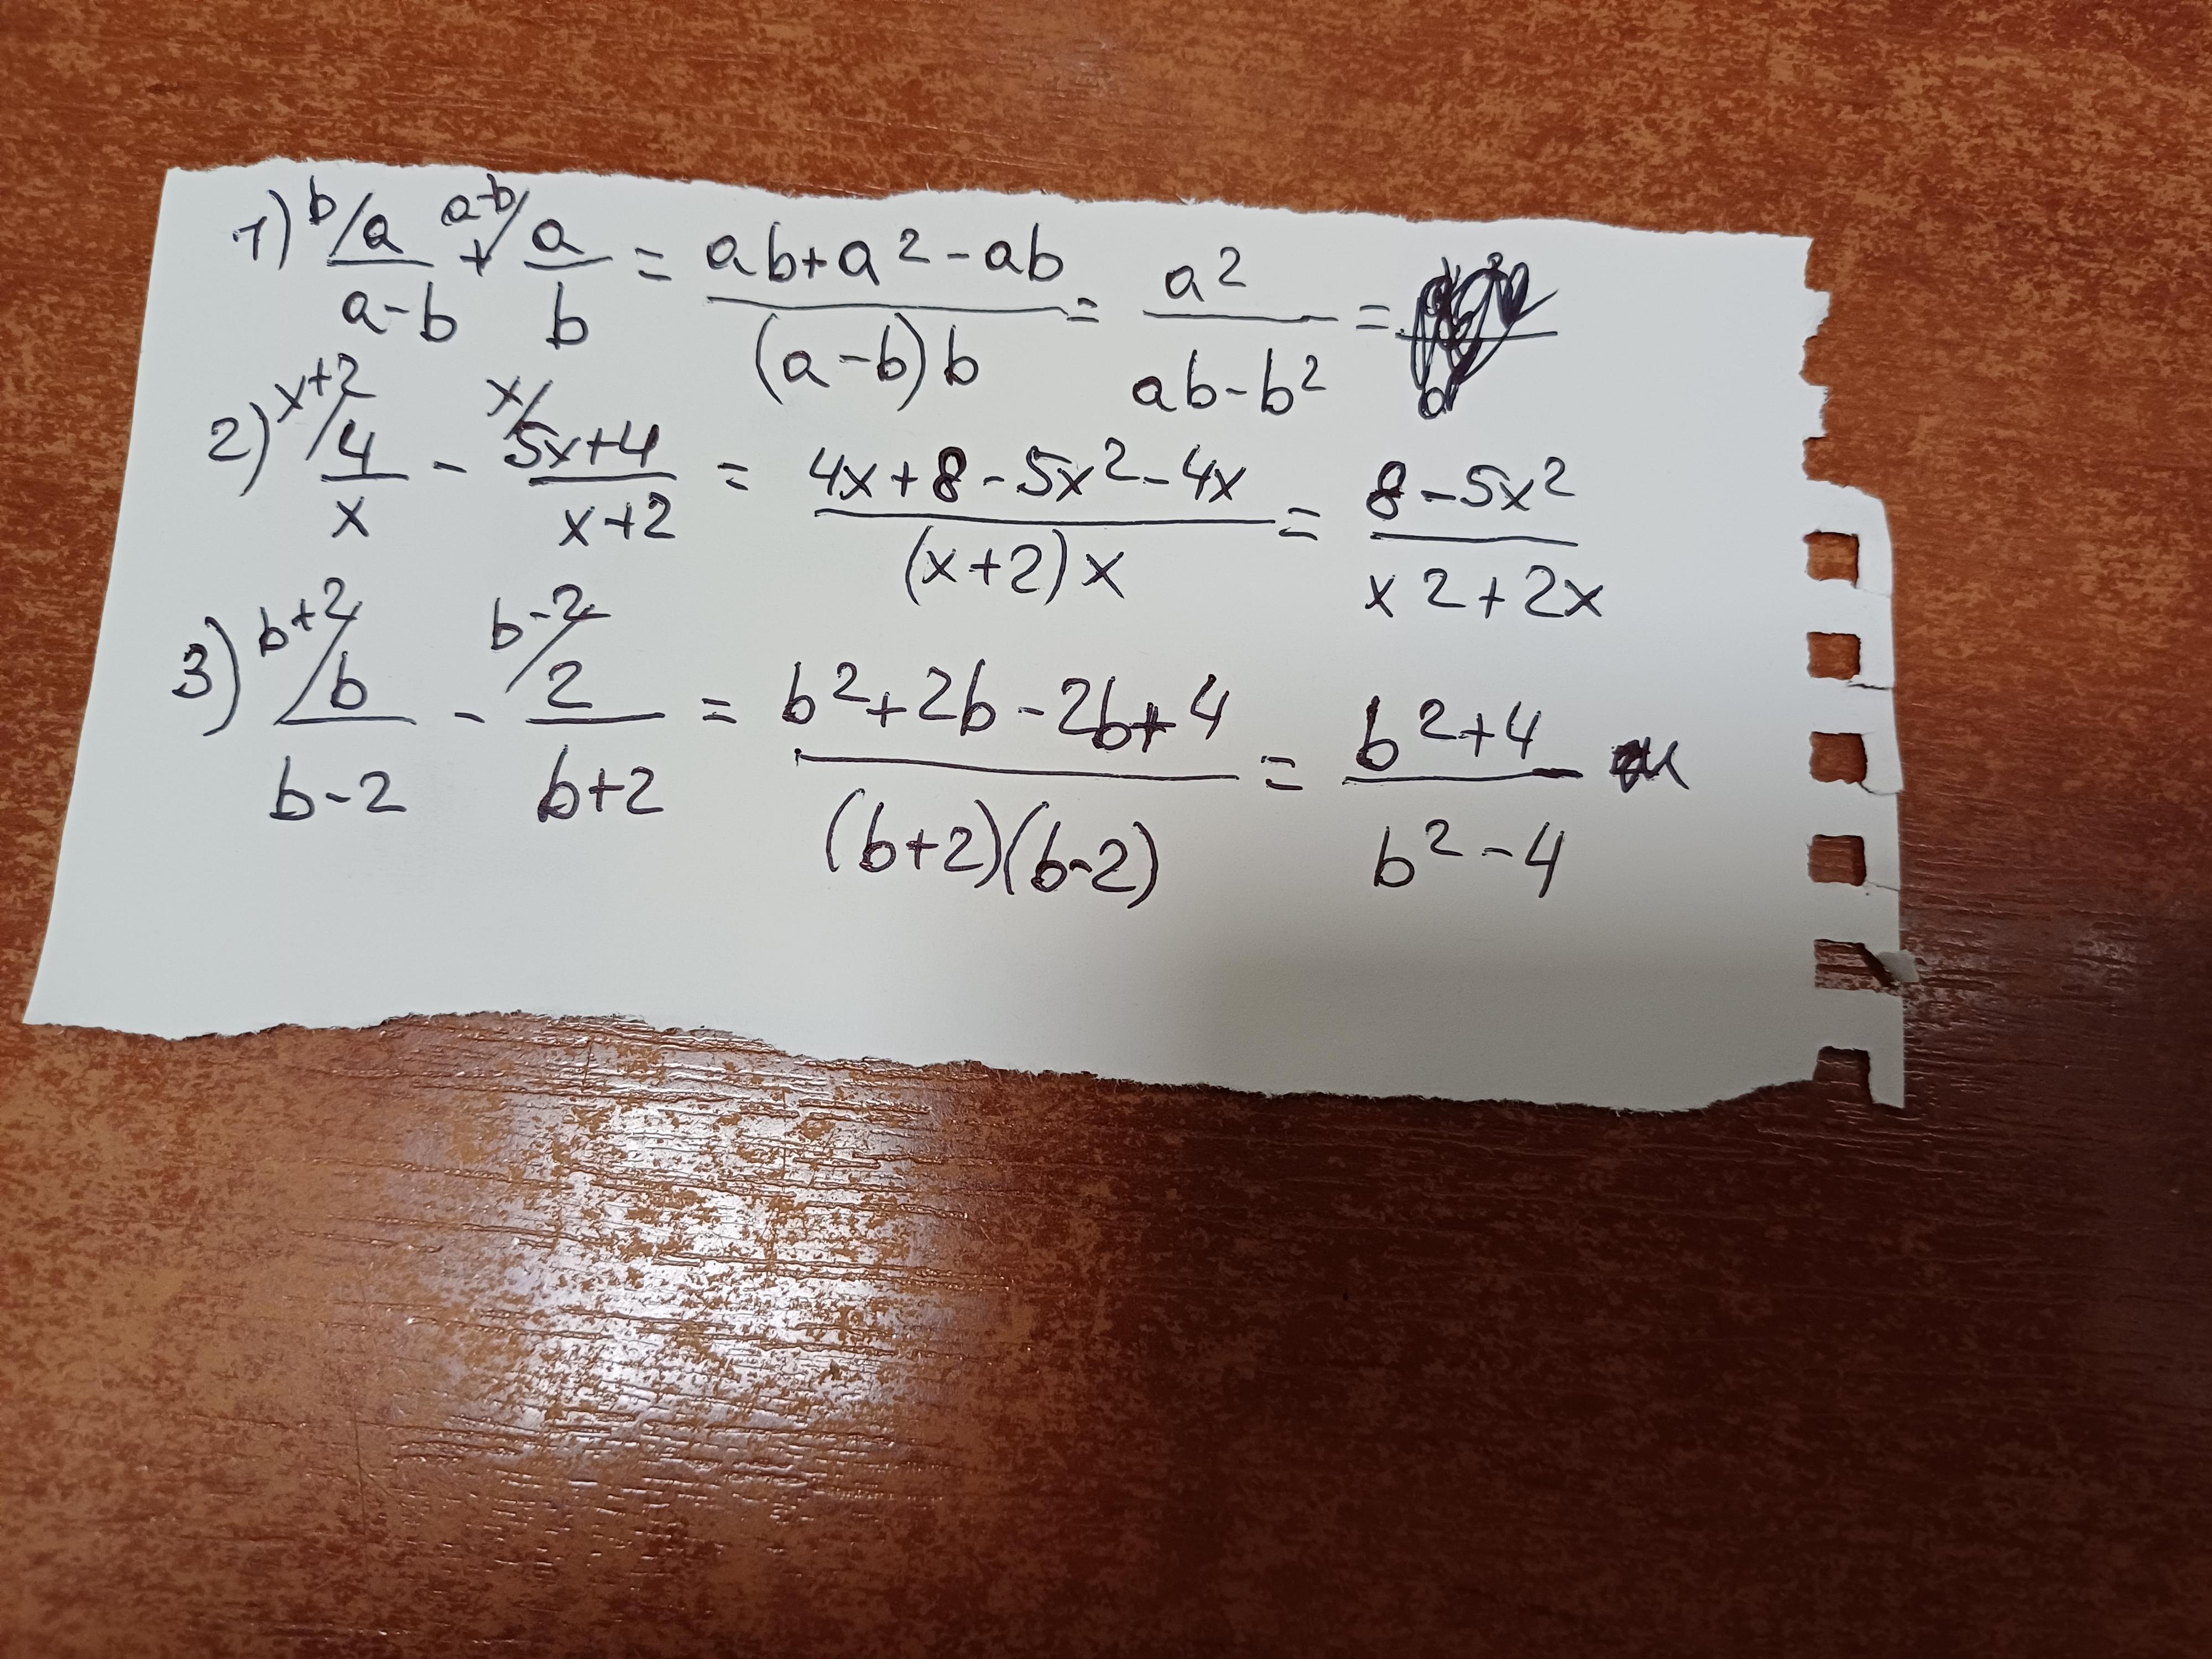 1) b/a/(a-b) + a-b/a/b = (ab+a²-ab)/((a-b)b) = a²/(ab-b²) =
2) x+2/4/x - x/(5x+4)/(x+2) = (4x+8-5x²-4x)/((x+2)x) = (8-5x²)/(x2+2x)
3) b+2/b/(b-2) - b-2/2/(b+2) = (b²+2b-2b+4)/((b+2)(b-2)) = (b²+4)/(b²-4)